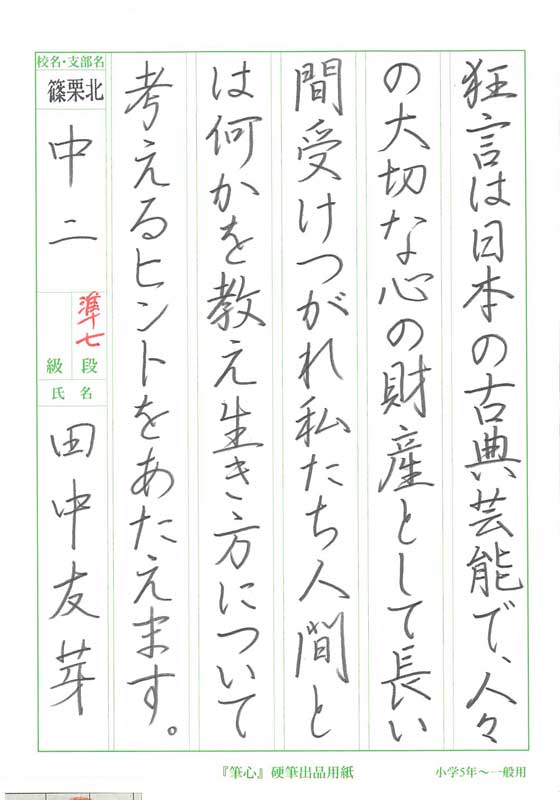 狂言は日本の古典芸能で、人々
の大切な心の財産として長い
間受けつがれ私たち人間と
は何かを教え生き方について
考えるヒントをあたえます。
校名・支部名
篠栗北
中二
準七
級 段
氏名
田中友芽
『筆心』硬筆出品用紙
小学5年〜一般用